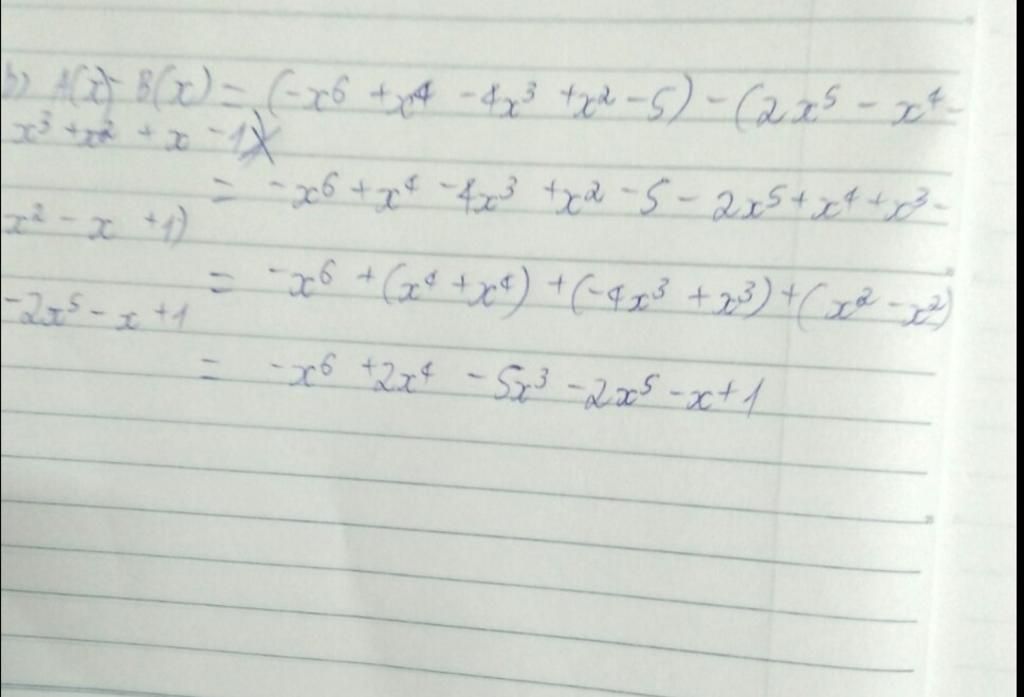 b) A(x) - B(x) = (-x⁶ + x⁴ - 4x³ + x² - 5) - (2x⁵ - x⁴ -
x³ + x² + x - 1)
= -x⁶ + x⁴ - 4x³ + x² - 5 - 2x⁵ + x⁴ + x³ -
x² - x + 1)
= -x⁶ + (x⁴ + x⁴) + (-4x³ + x³) + (x² - x²)
-2x⁵ - x + 1
= -x⁶ + 2x⁴ - 5x³ - 2x⁵ - x + 1